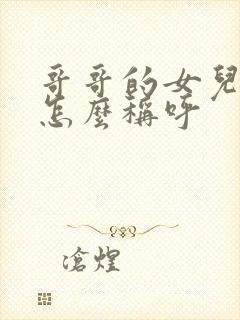 哥哥的女兒
怎麼稱呼
滄煌